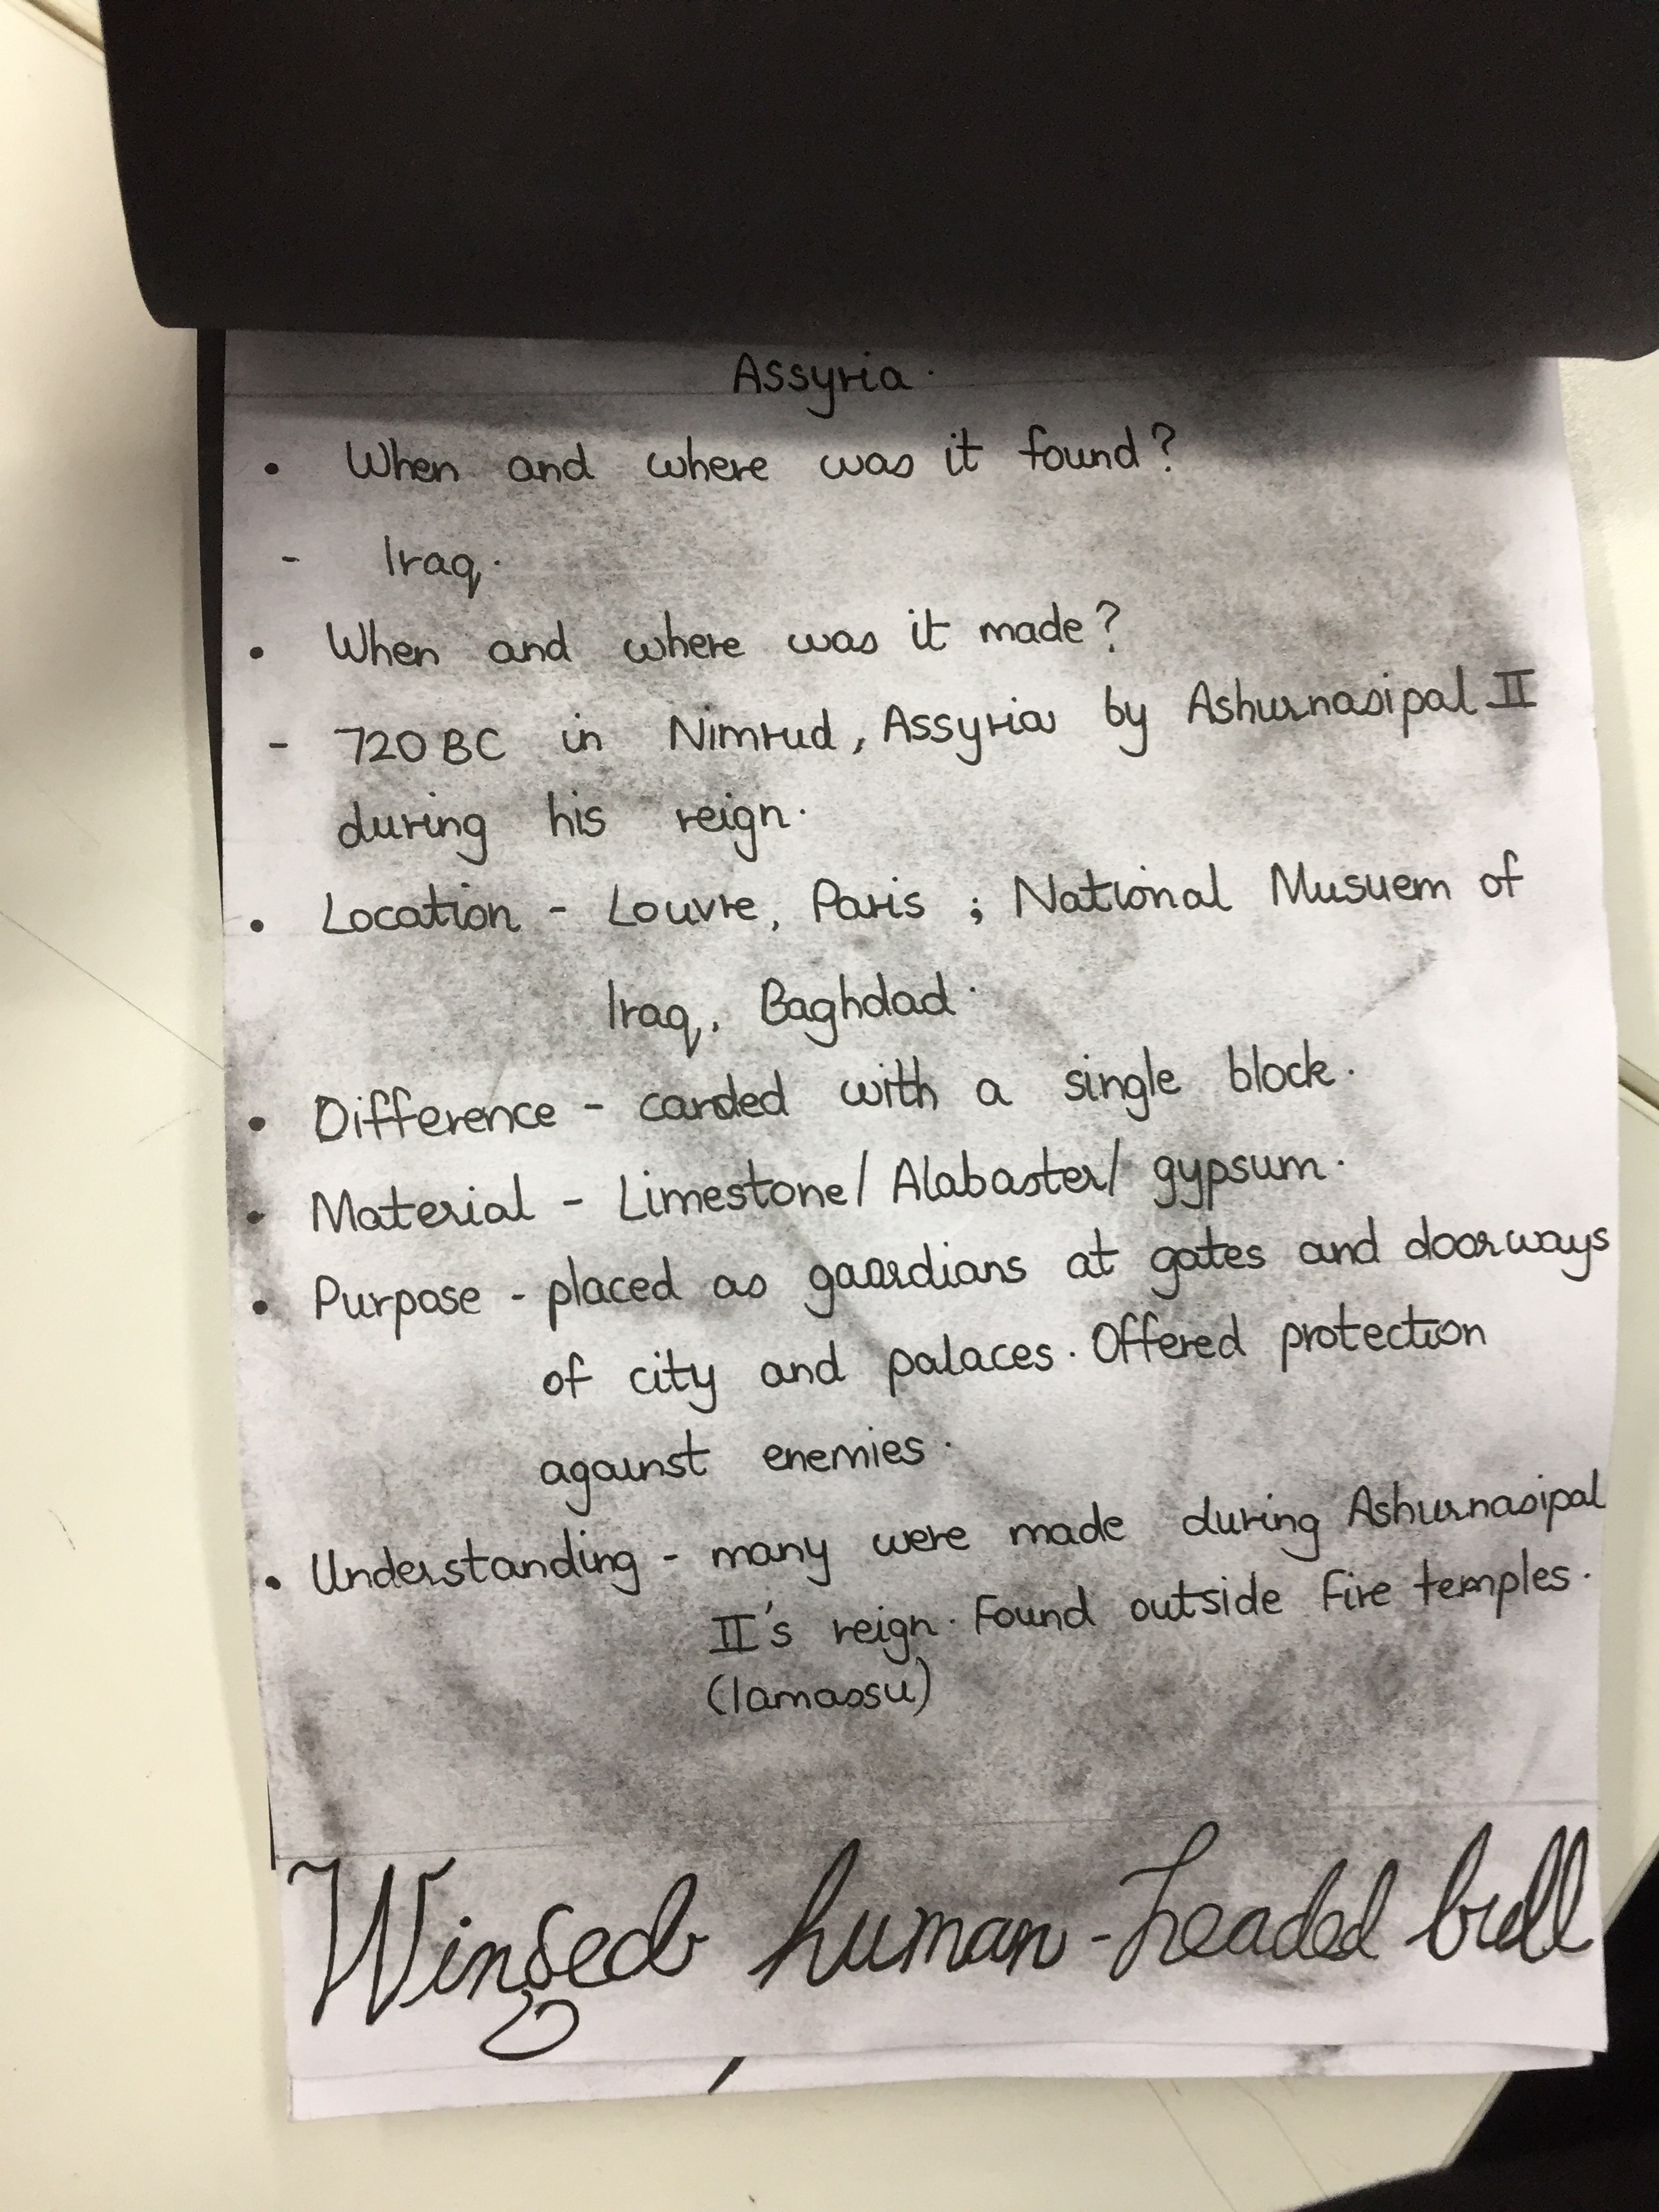 Assyria.
• When and where was it found?
- Iraq.
• When and where was it made?
- 720 BC in Nimrud, Assyria by Ashurnasipal II
during his reign.
• Location - Louvre, Paris ; National Musuem of
Iraq, Baghdad.
• Difference - carded with a single block.
• Material - Limestone/ Alabaster/ gypsum.
• Purpose - placed as gaurdians at gates and doorways
of city and palaces. Offered protection
against enemies.
• Understanding - many were made during Ashurnasipal
II's reign. Found outside fire temples.
(lamassu)
Winged human-headed bull